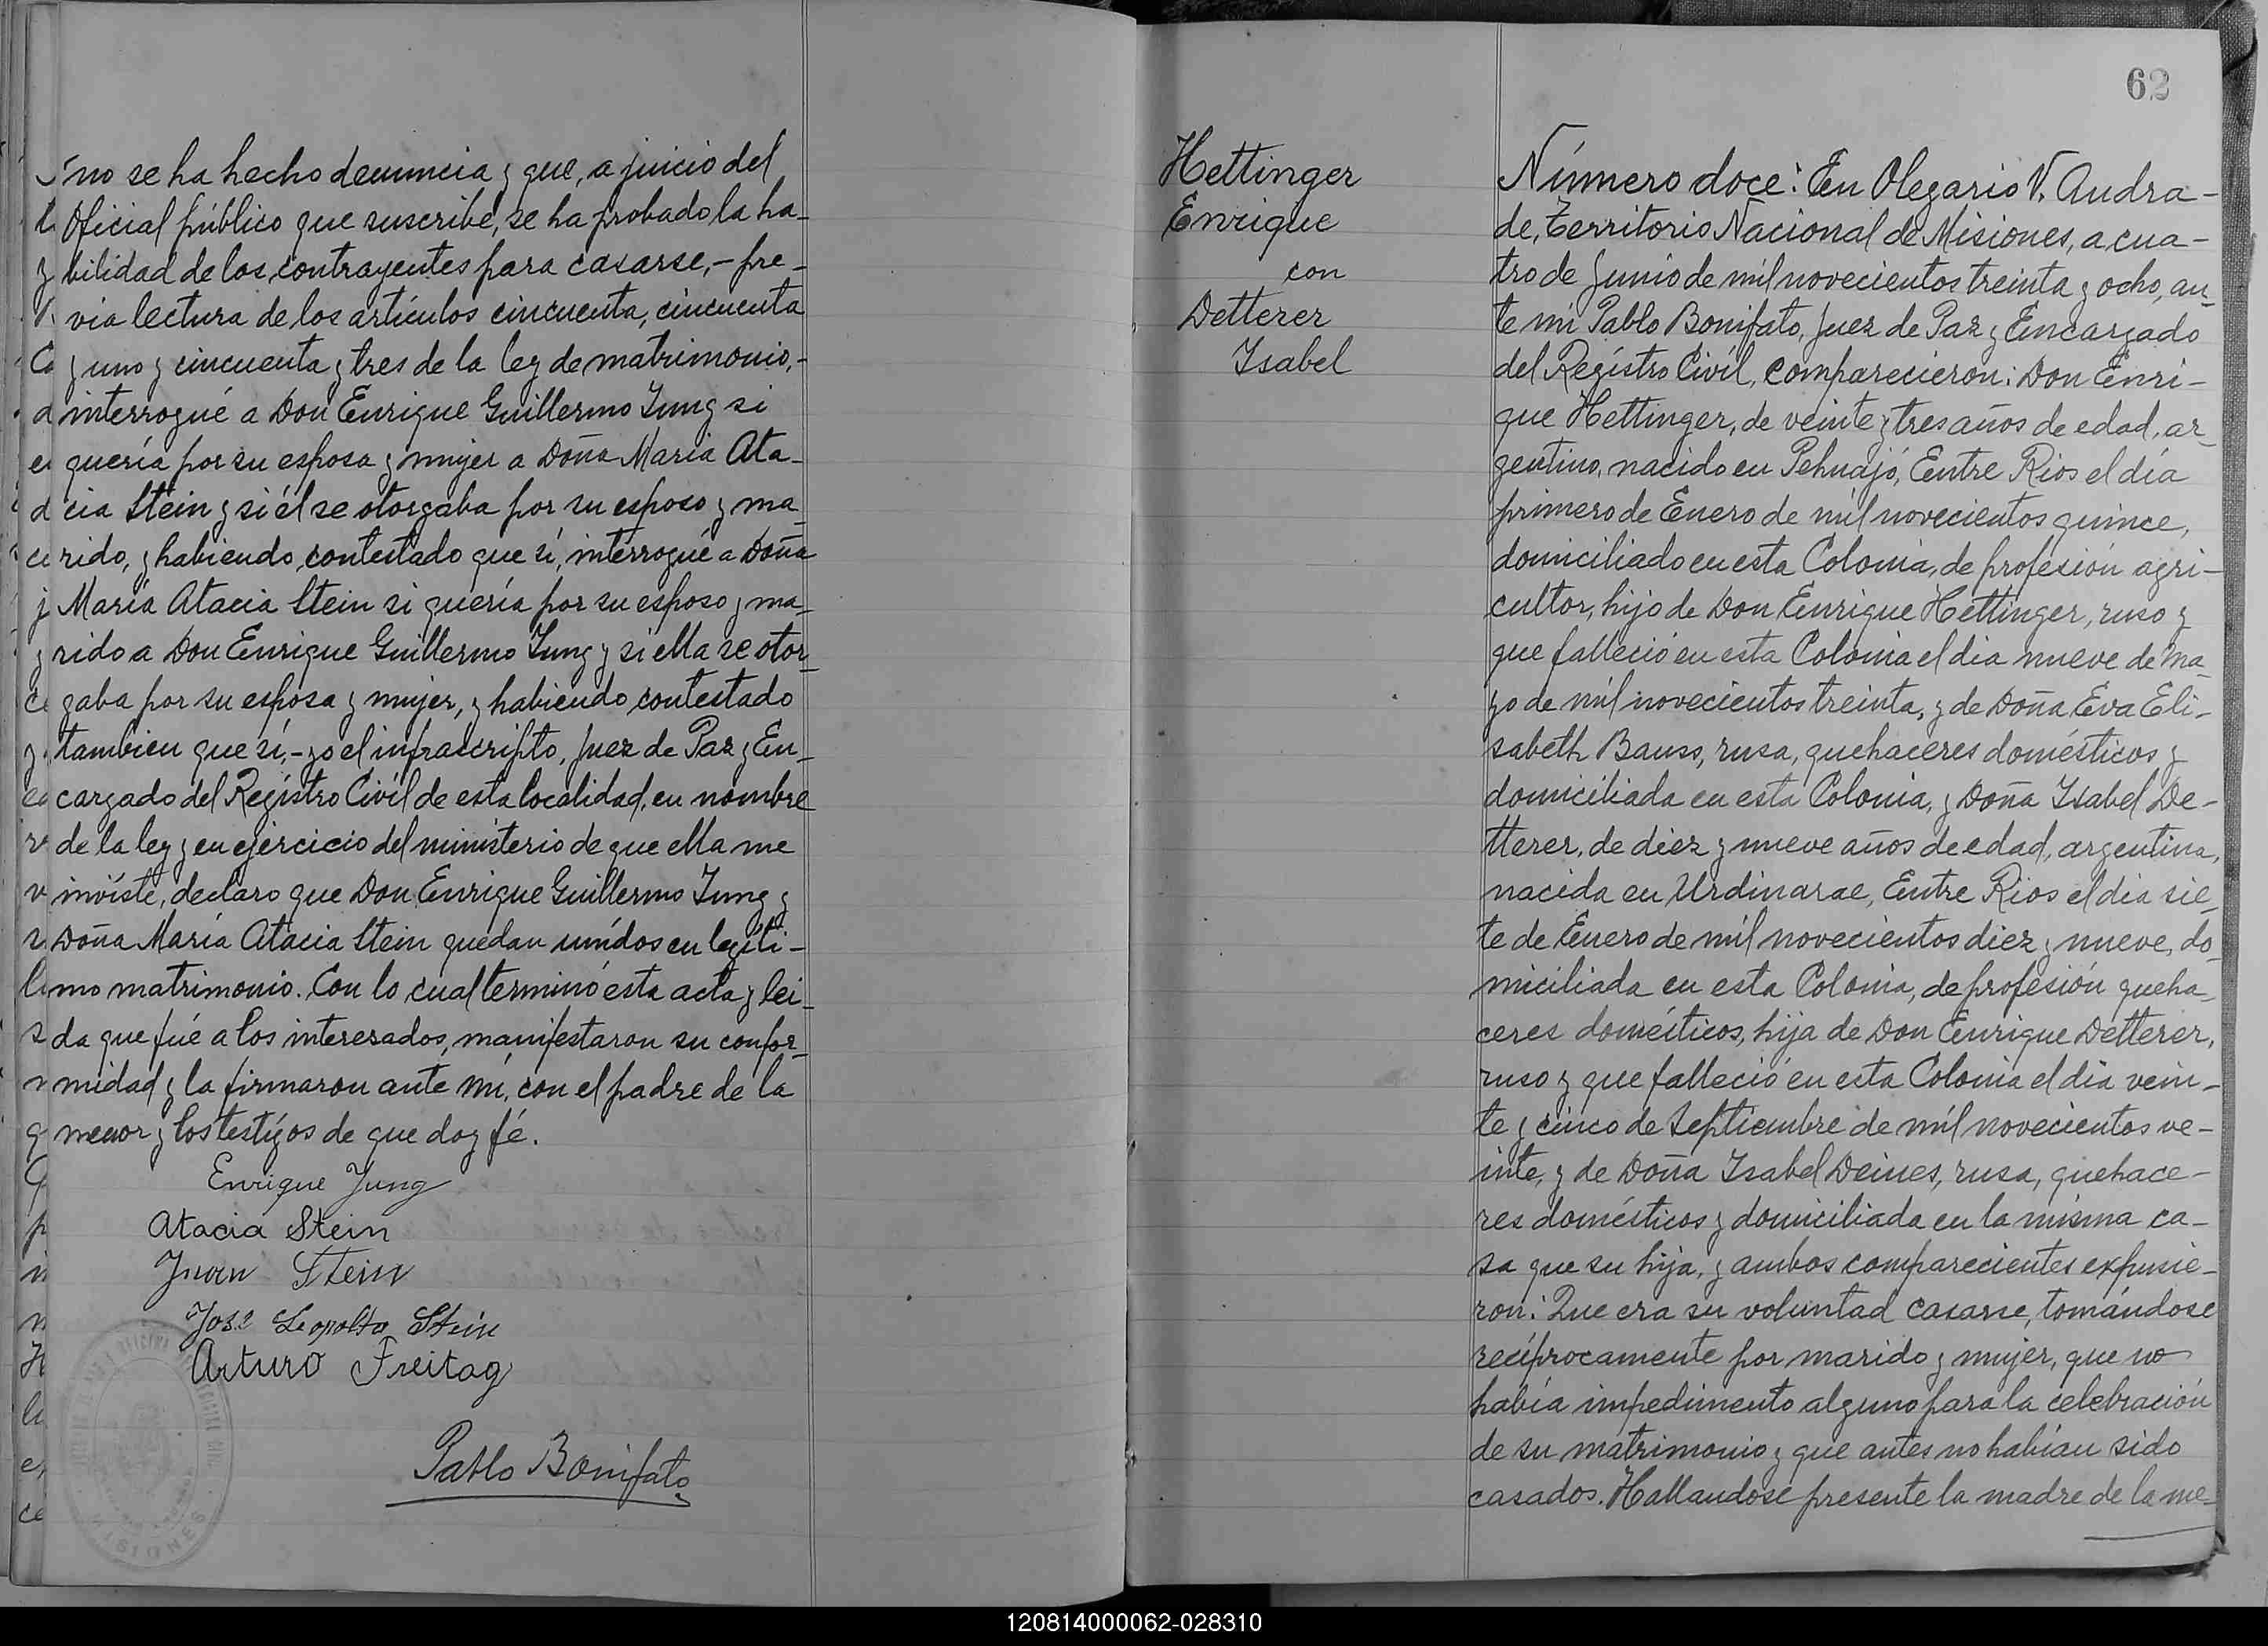 no se ha hecho denuncia y que, a juicio del
Oficial público que suscribe, se ha probado la ha-
bilidad de los contrayentes para casarse,- pre-
via lectura de los artículos cincuenta, cincuenta
y uno y cincuenta y tres de la ley de matrimonio,-
interrogué a Don Enrique Guillermo Jung si
quería por su esposa y mujer a Doña María Ata-
cia Stein y si él se otorgaba por su esposo y ma-
rido, y habiendo contestado que sí, interrogué a Doña
María Atacia Stein si quería por su esposo y ma-
rido a Don Enrique Guillermo Jung y si ella se otor-
gaba por su esposa y mujer, y habiendo contestado
tambien que sí,- yo el infrascripto, Juez de Paz y En-
cargado del Regístro Civíl de esta localidad, en nombre
de la ley y en ejercicio del ministerio de que ella me
inviste, declaro que Don Enrique Guillermo Jung y
Doña María Atacia Stein quedan unídos en legíti-
mo matrimonio. Con lo cual terminó esta acta y lei-
da que fué a los interesados, manifestaron su confor-
midad y la firmaron ante mí, con el padre de la
menor y los testígos de que doy fé.
Enrique Jung
Atacia Stein
Juan Stein
José Leopolto Stein
Arturo Freitag
Pablo Bonifato
MISIONES
62
Hettinger
Enrique
con
Detterer
Isabel
Número doce: En Olegario V. Andra-
de, Territorio Nacional de Misiones, a cua-
tro de Junio de mil novecientos treinta y ocho, an-
te mí Pablo Bonifato, Juez de Paz y Encargado
del Regístro Civíl, comparecieron: Don Enri-
que Hettinger, de veinte y tres años de edad, ar-
gentino, nacido en Pehuajó, Entre Rios el día
primero de Enero de mil novecientos quince,
domiciliado en esta Colonia, de profesión agri-
cultor, hijo de Don Enrique Hettinger, ruso y
que falleció en esta Colonia el dia nueve de Ma-
yo de mil novecientos treinta, y de Doña Eva Eli-
sabeth Bauss, rusa, quehaceres domésticos y
domiciliada en esta Colonia, y Doña Isabel De-
tterer, de diez y nueve años de edad, argentina,
nacida en Urdinarae, Entre Rios el dia sie-
te de Enero de mil novecientos diez y nueve, do-
miciliada en esta Colonia, de profesión queha-
ceres domésticos, hija de Don Enrique Detterer,
ruso y que falleció en esta Colonia el dia vein-
te y cinco de Septiembre de mil novecientos ve-
inte, y de Doña Isabel Deines, rusa, quehace-
res domésticos y domiciliada en la misma ca-
sa que su hija, y ambos comparecientes expusie-
ron: Que era su voluntad casarse, tomándose
recíprocamente por marido y mujer, que no
había impedimento alguno para la celebración
de su matrimonio y que antes no habían sido
casados. Hallandose presente la madre de la me-
120814000062-028310